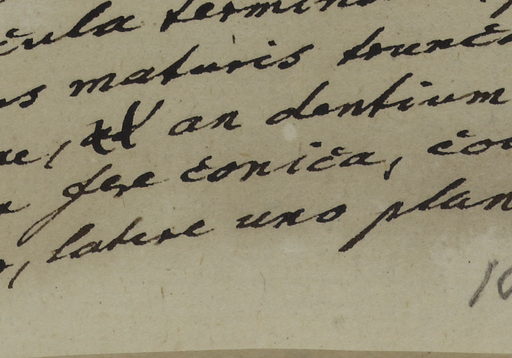 cula termin
us maturis trunca
an dentium
fere conica, co
, latere uno plan
10